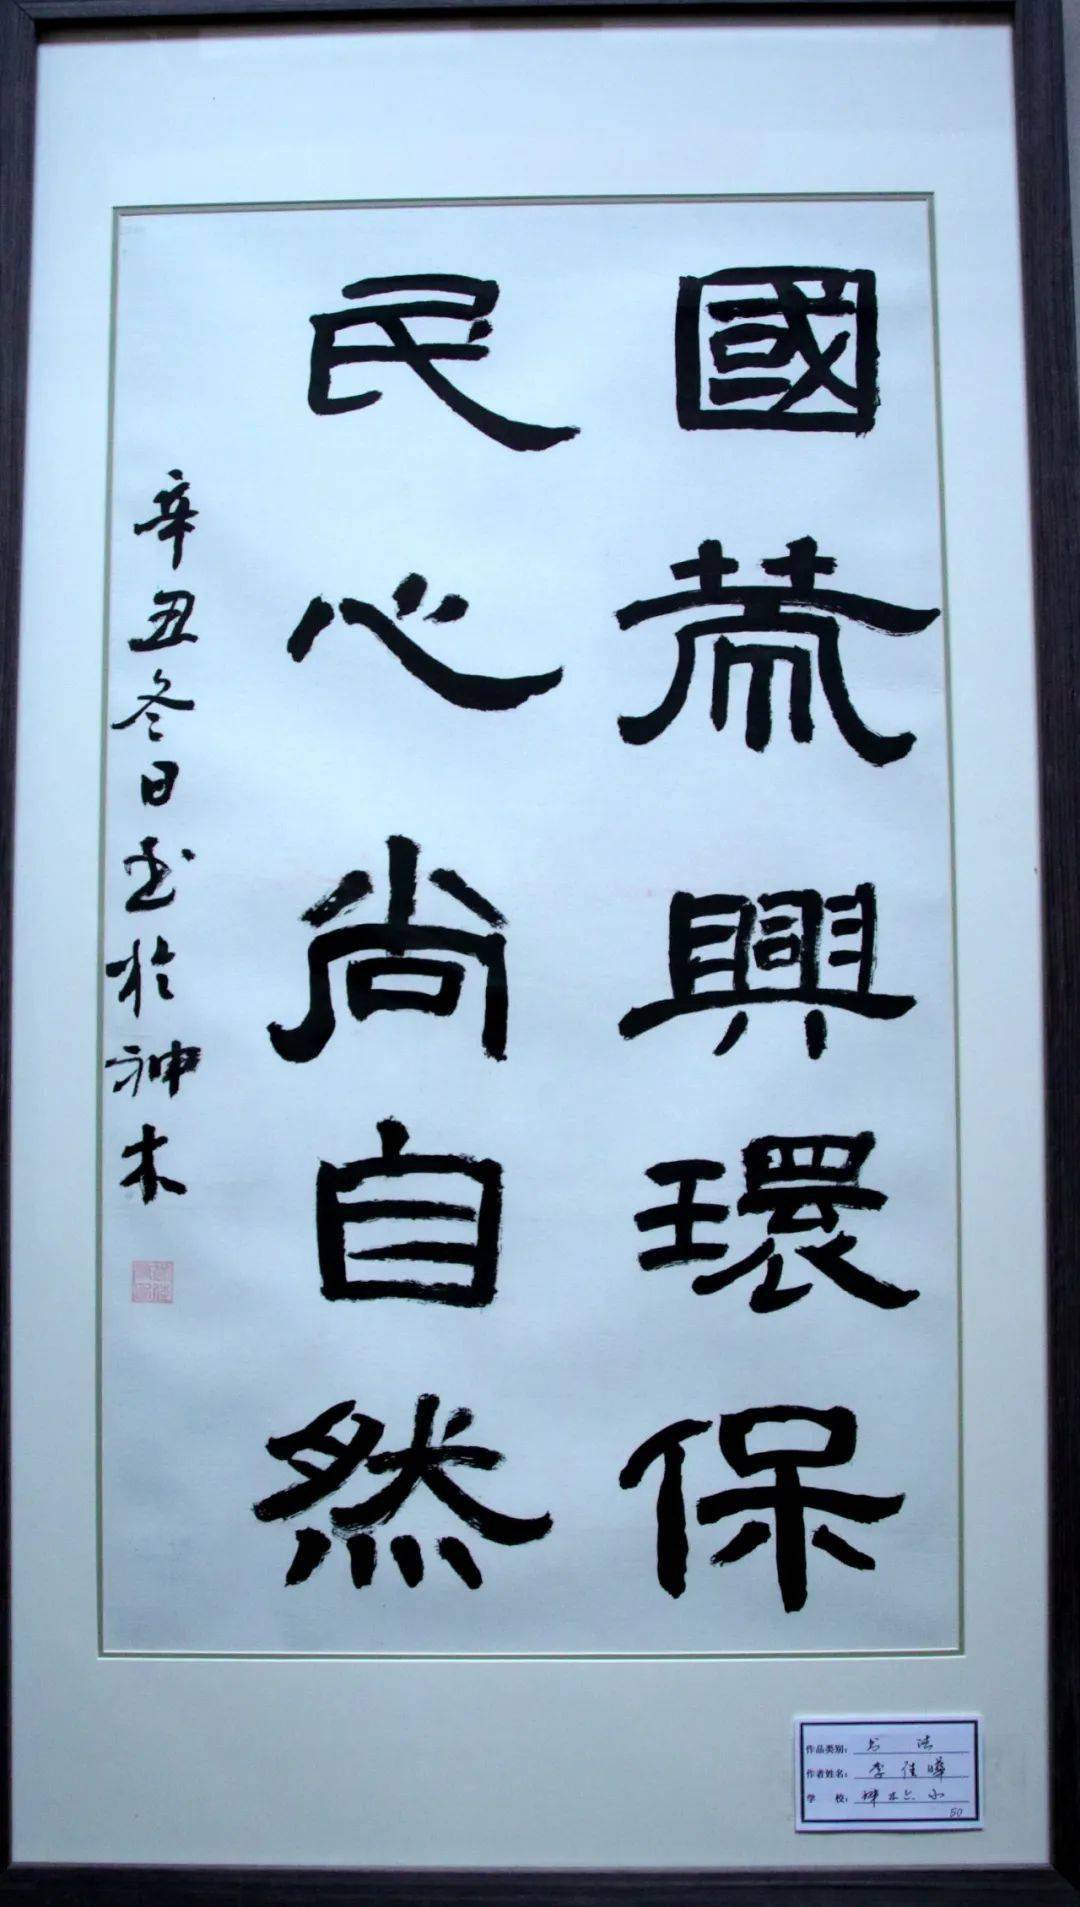 國荣興環保
民心尚自然
辛丑冬日书於神木
作品类别：书法
作者姓名：李佳晔
学校：神木六小
50